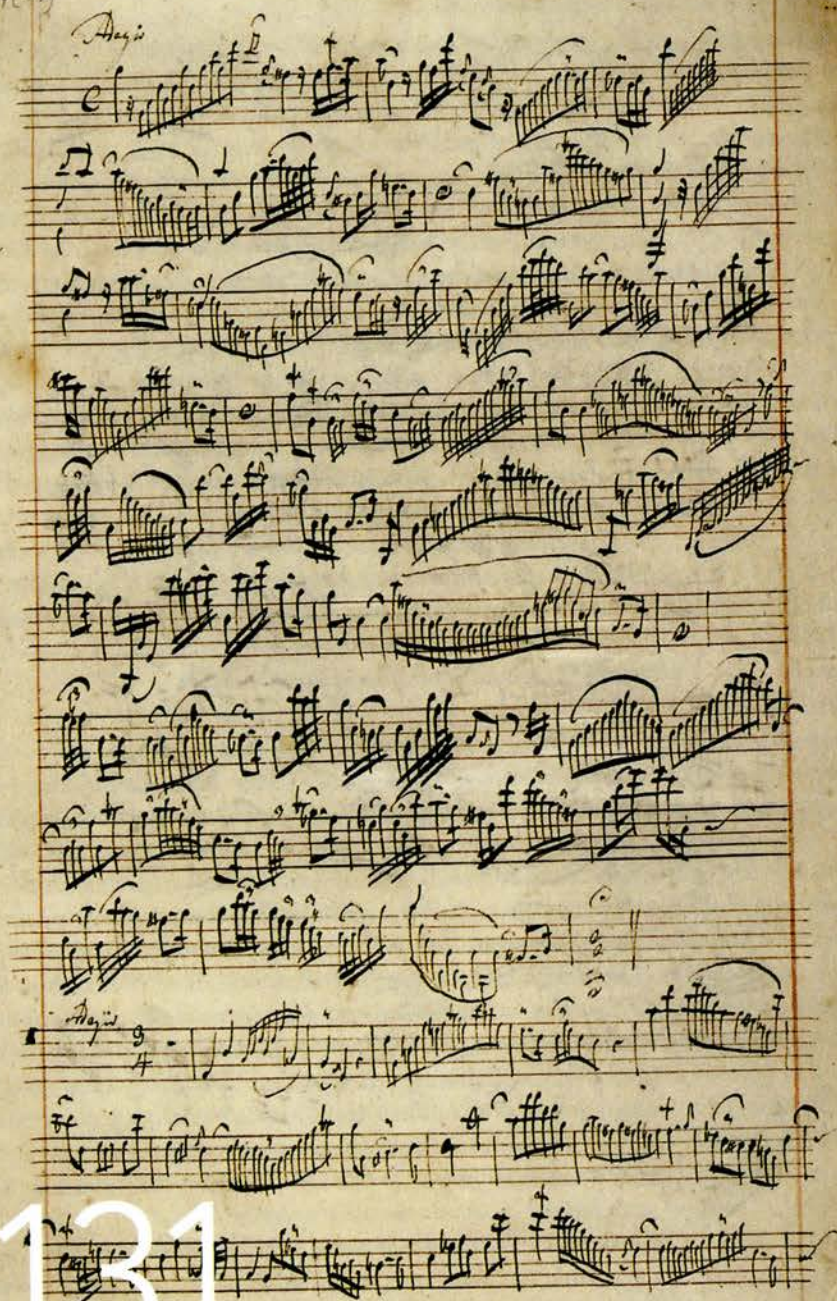 Adagio
C
Adagio
3
4
131